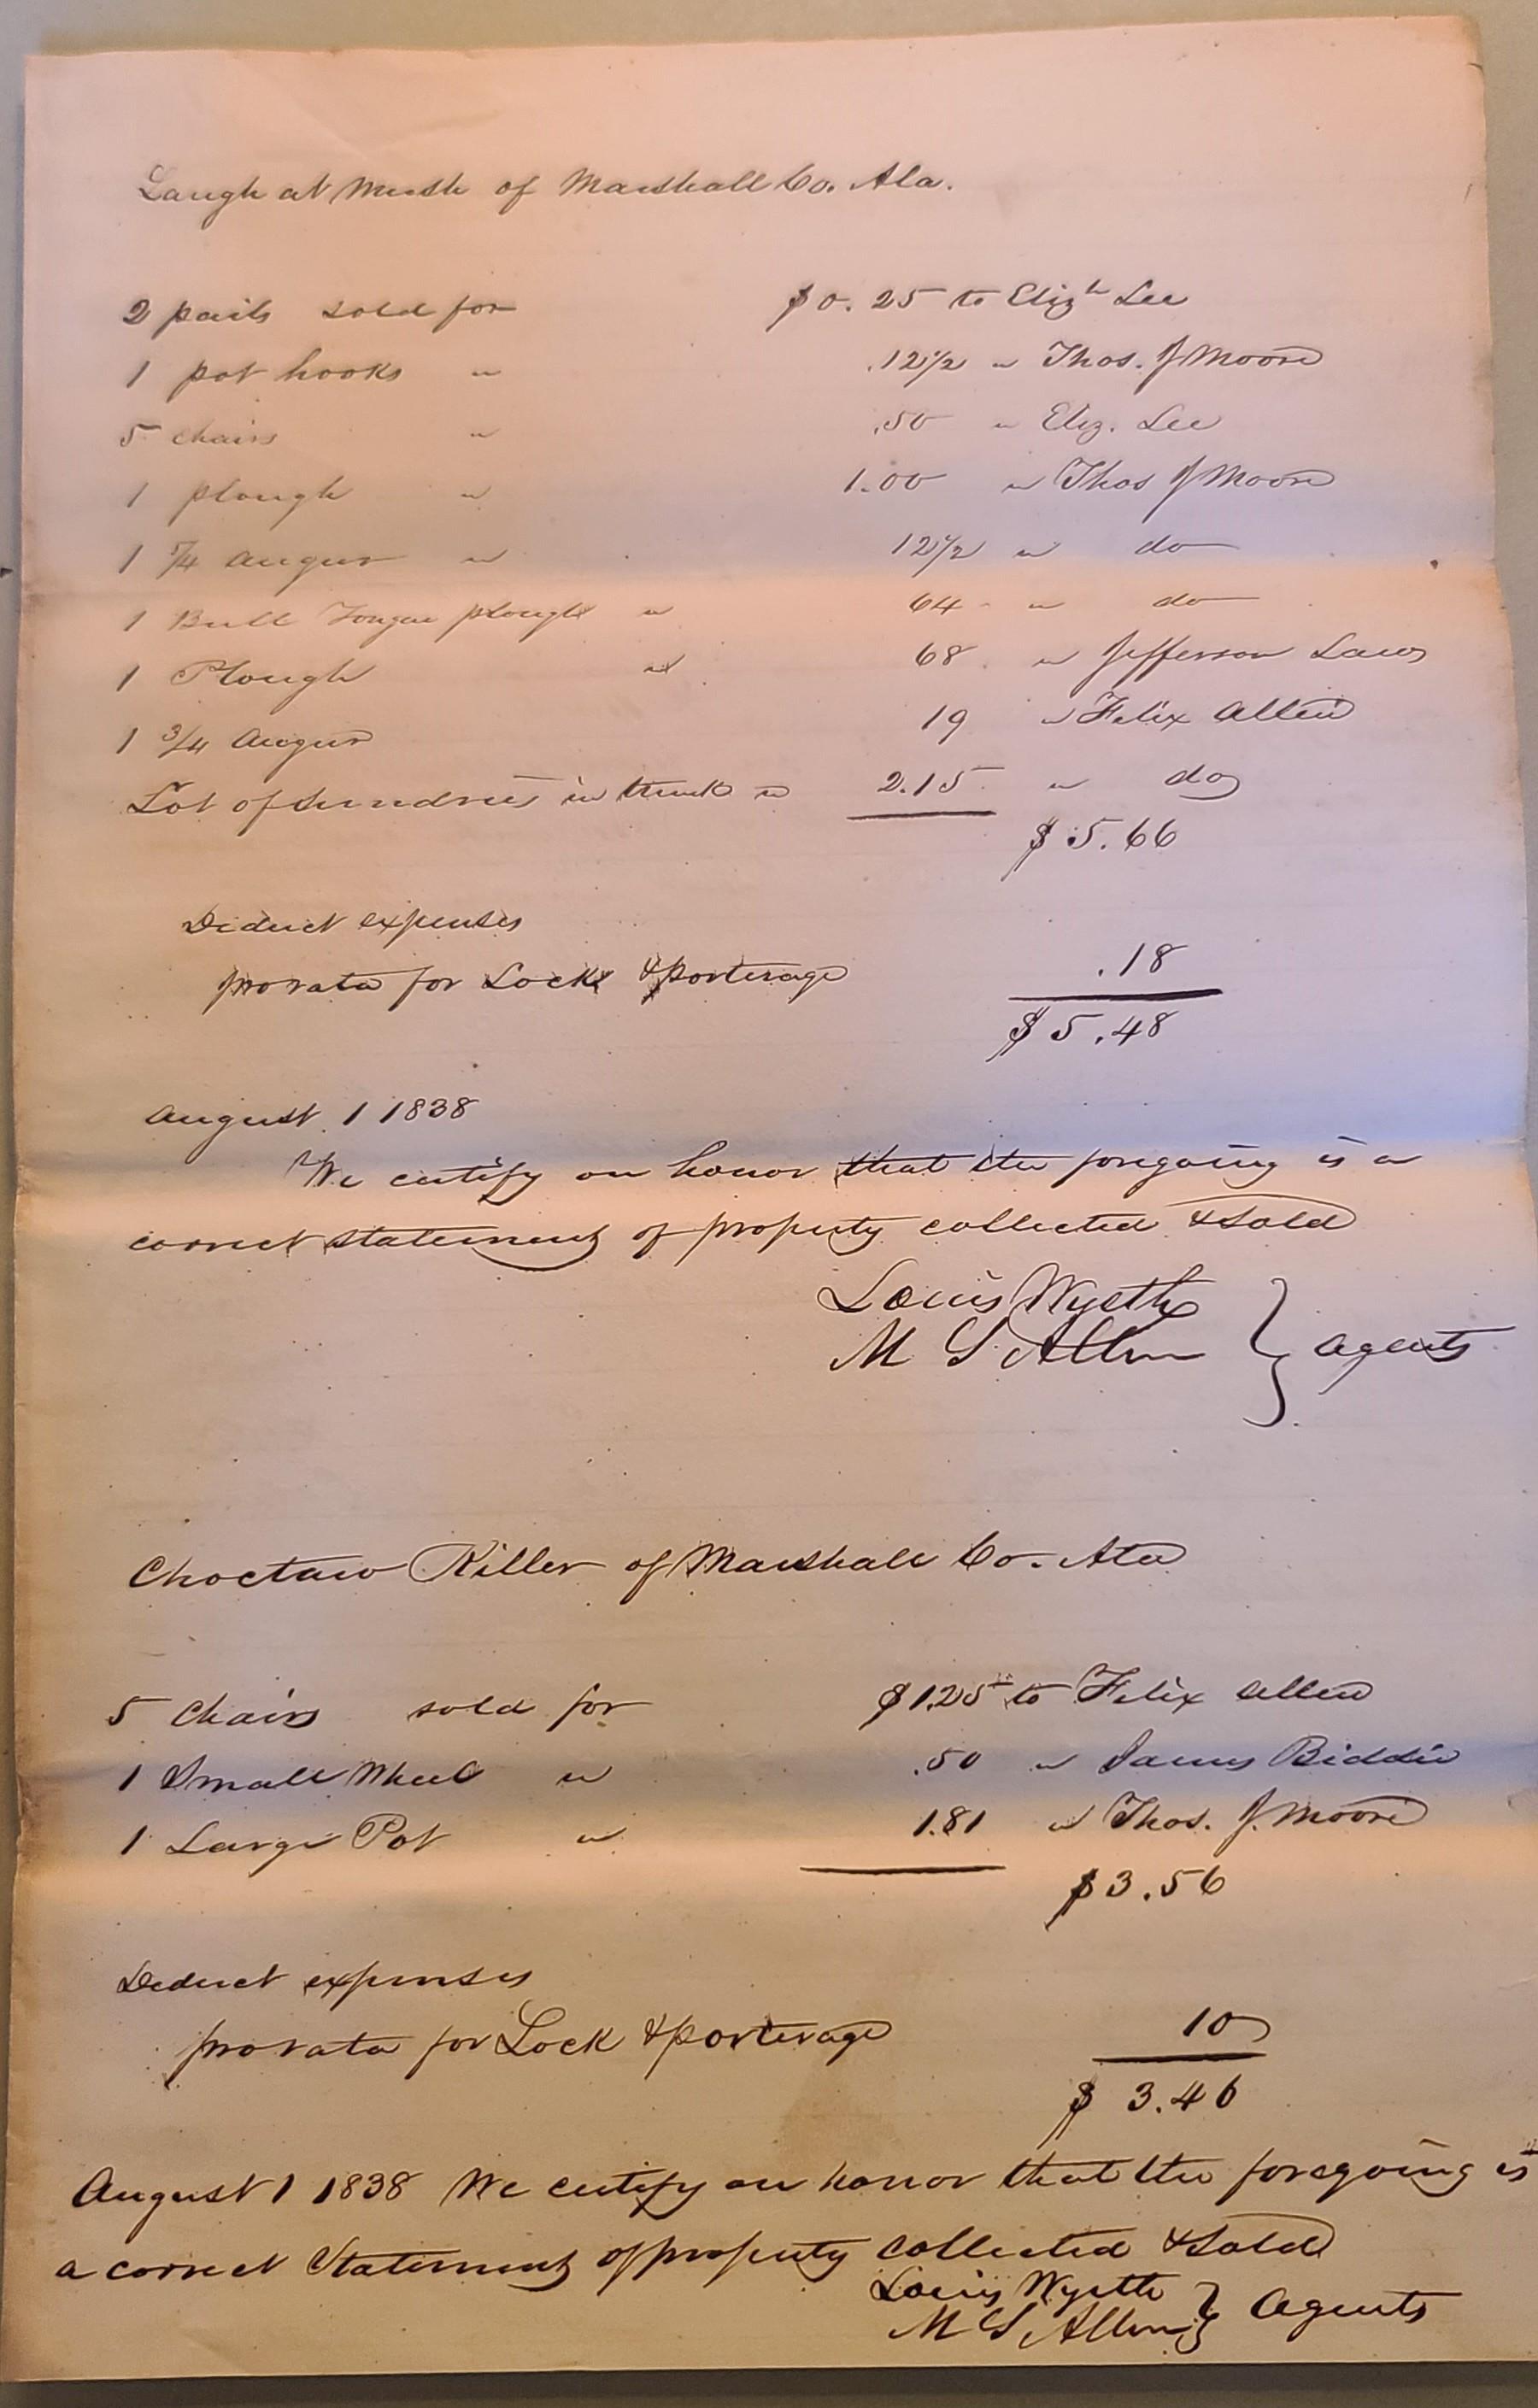 Laugh at Mush of Marshall Co. Ala.
2 pails sold for $0.25 to Elizh Lee
1 pot hooks " .12 1/2 " Thos. J Moore
5 chairs " .50 " Eliz. Lee
1 plough " 1.00 " Thos J Moore
1 5/4 augur " 12 1/2 " do
1 Bull Tongue plough " 64 " do
1 Plough " 68 " Jefferson Laws
1 3/4 augur 19 " Felix Allen
Lot of sundries in trunk " 2.15 " do
$5.66
Deduct expenses
prorata for Lock & porterage .18
$5.48
August 1 1838
We certify on honor that the foregoing is a
correct statement of property collected & sold
Louis Wyeth
M G Allen } agents
Choctaw Killer of Marshall Co. Ala
5 Chairs sold for $1.25 to Felix Allen
1 Small Wheel " .50 " James Biddie
1 Large Pot " 1.81 " Thos. J. Moore
$3.56
Deduct expenses
prorata for Lock & porterage 10
$3.46
August 1 1838 We certify on honor that the foregoing is
a correct Statement of property collected & sold
Louis Wyeth
M G Allen } Agents